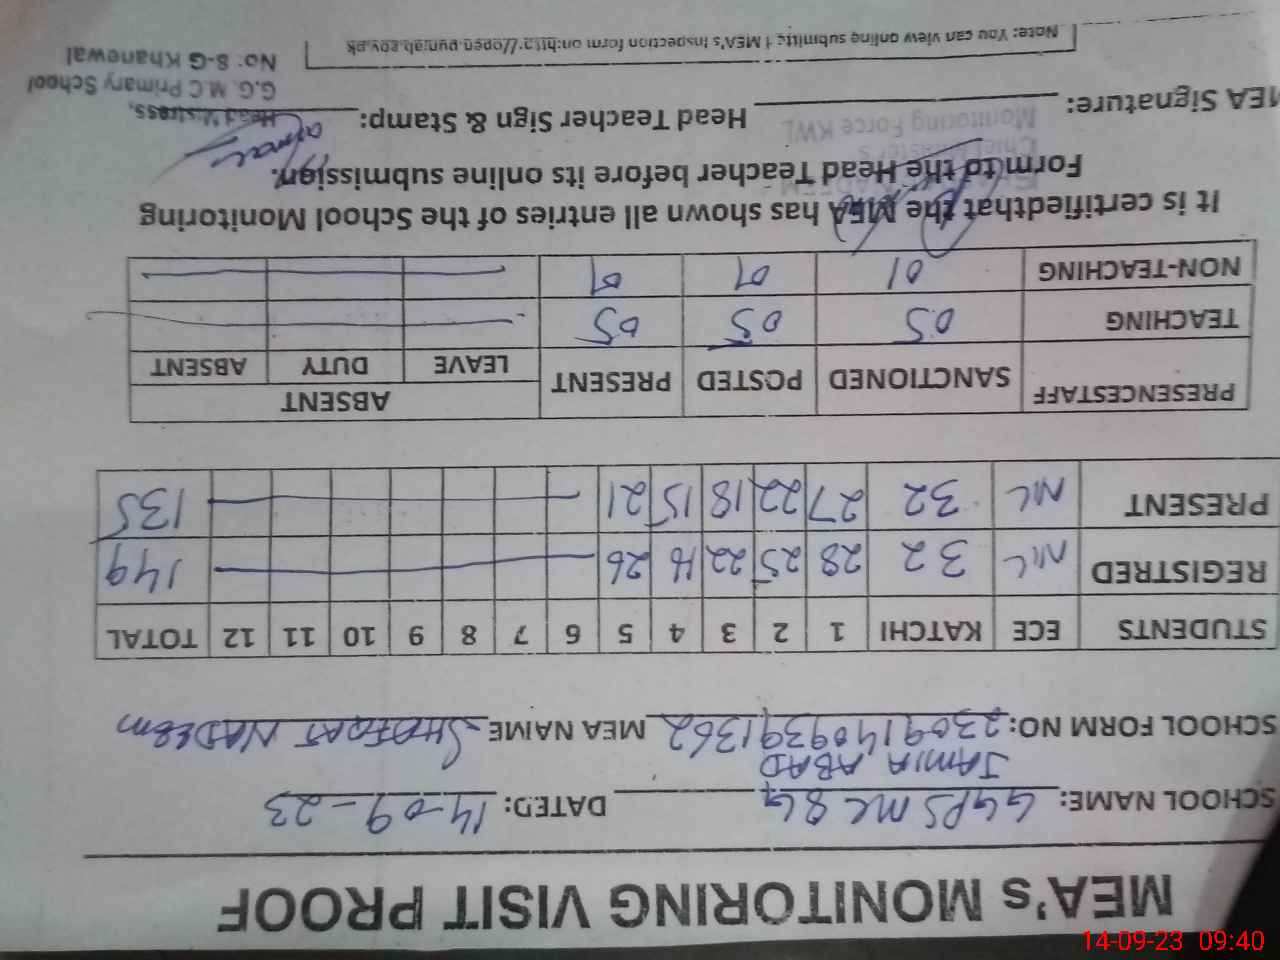 MEA's MONITORING VISIT PROOF
SCHOOL NAME: GGPS MC 8G DATED: 14-09-23
JAMIA ABAD
SCHOOL FORM NO: 23091409391362 MEA NAME SHAFQAT NADEEM
STUDENTS ECE KATCHI 1 2 3 4 5 6 7 8 9 10 11 12 TOTAL
REGISTRED NIL 32 28 25 22 16 26 149
PRESENT NIL 32 27 22 18 15 21 135
PRESENCESTAFF SANCTIONED POSTED PRESENT ABSENT
LEAVE DUTY ABSENT
TEACHING 05 05 05
NON-TEACHING 01 01 01
It is certifiedthat the MEA has shown all entries of the School Monitoring
Form to the Head Teacher before its online submission.
Chief Minister's
Monitoring Force KWL
MEA Signature: Head Teacher Sign & Stamp:
Head Mistress,
G.G. M.C Primary School
No: 8-G Khanewal
Note: You can view online submitted MEA's inspection form on:http://open.punjab.gov.pk
14-09-23 09:40